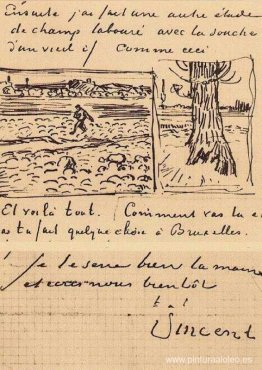 Ensuite j'ai fait une autre étude
de champs labouré avec la souche
d'un vieil if Comme ceci
Et voilà tout. Comment vas tu et
as tu fait quelque chose à Bruxelles.
Je te serre bien la main
et écris nous bientôt
t. à t.
Vincent
www.pinturaaloleo.es